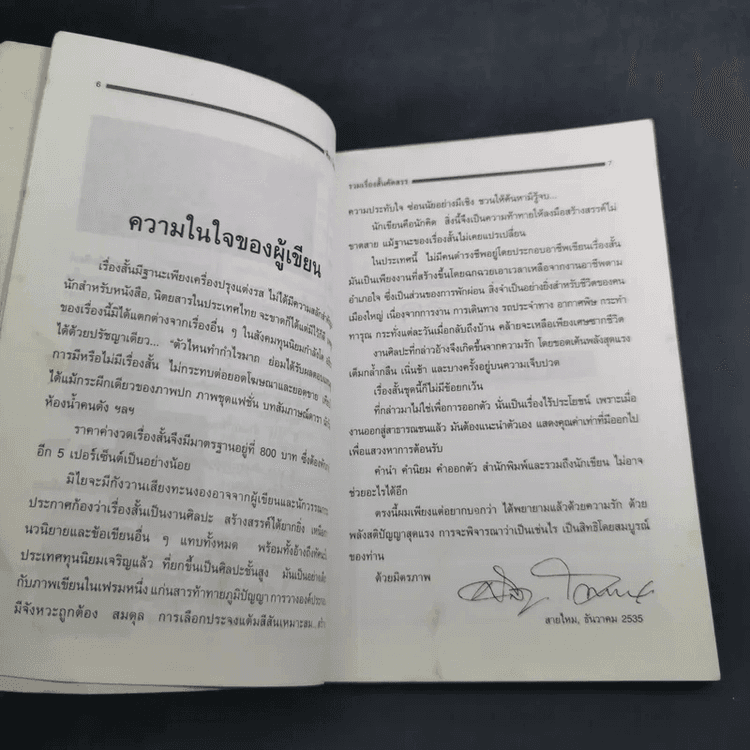 6
ความในใจของผู้เขียน
เรื่องสั้นมีฐานะเพียงเครื่องปรุงแต่งรส ไม่ได้มีความสลักสำคัญ
นักสำหรับหนังสือ, นิตยสารในประเทศไทย จะขาดก็ได้แต่มีไว้ก็ดี
ของเรื่องนี้มิได้แตกต่างจากเรื่องอื่น ๆ ในสังคมทุนนิยมกำลังโต
ได้ด้วยปรัชญาเดียว... "ตัวไหนทำกำไรมาก ย่อมได้รับผลตอบแทน
การมีหรือไม่มีเรื่องสั้น ไม่กระทบต่อยอดโฆษณาและยอดขาย
ได้แม้กระผีกเดียวของภาพปก ภาพชุดแฟชั่น บทสัมภาษณ์ดารา
ห้องน้ำคนดัง ฯลฯ
ราคาค่างวดเรื่องสั้นจึงมีมาตรฐานอยู่ที่ 800 บาท ซึ่งต้องหัก
อีก 5 เปอร์เซ็นต์เป็นอย่างน้อย
มิไยจะมีกังวานเสียงทะนงองอาจจากผู้เขียนและนักวรรณกรรม
ประกาศก้องว่าเรื่องสั้นเป็นงานศิลปะ สร้างสรรค์ได้ยากยิ่ง เหนือ
นวนิยายและข้อเขียนอื่น ๆ แทบทั้งหมด พร้อมทั้งอ้างถึงทัศนะ
ประเทศทุนนิยมเจริญแล้ว ที่ยกขึ้นเป็นศิลปะชั้นสูง มันเป็นอย่างเดียว
กับภาพเขียนในเฟรมหนึ่ง แก่นสารท้าทายภูมิปัญญา การวางองค์ประกอบ
มีจังหวะถูกต้อง สมดุล การเลือกประจงแต้มสีสันเหมาะสม...
รวมเรื่องสั้นคัดสรร
7
ความประทับใจ ซ่อนนัยอย่างมีเชิง ชวนให้ค้นหามิรู้จบ...
นักเขียนคือนักคิด สิ่งนี้จึงเป็นความท้าทายให้ลงมือสร้างสรรค์ไม่
ขาดสาย แม้ฐานะของเรื่องสั้นไม่เคยแปรเปลี่ยน
ในประเทศนี้ ไม่มีคนดำรงชีพอยู่โดยประกอบอาชีพเขียนเรื่องสั้น
มันเป็นเพียงงานที่สร้างขึ้นโดยฉกฉวยเอาเวลาเหลือจากงานอาชีพตาม
อำเภอใจ ซึ่งเป็นส่วนของการพักผ่อน สิ่งจำเป็นอย่างยิ่งสำหรับชีวิตของคน
เมืองใหญ่ เนื่องจากการงาน การเดินทาง รถประจำทาง อากาศพิษ กระทำ
ทารุณ กระทั่งแต่ละวันเมื่อกลับถึงบ้าน คล้ายจะเหลือเพียงเศษซากชีวิต
งานศิลปะที่กล่าวอ้างจึงเกิดขึ้นจากความรัก โดยขอดเค้นพลังสุดแรง
เต็มกล้ำกลืน เนิ่นช้า และบางครั้งอยู่บนความเจ็บปวด
เรื่องสั้นชุดนี้ก็ไม่มีข้อยกเว้น
ที่กล่าวมาไม่ใช่เพื่อการออกตัว นั่นเป็นเรื่องไร้ประโยชน์ เพราะเมื่อ
งานออกสู่สาธารณชนแล้ว มันต้องแนะนำตัวเอง แสดงคุณค่าเท่าที่มีออกไป
เพื่อแสวงหาการต้อนรับ
คำนำ คำนิยม คำออกตัว สำนักพิมพ์และรวมถึงนักเขียน ไม่อาจ
ช่วยอะไรได้อีก
ตรงนี้ผมเพียงแต่อยากบอกว่า ได้พยายามแล้วด้วยความรัก ด้วย
พลังสติปัญญาสุดแรง การจะพิจารณาว่าเป็นเช่นไร เป็นสิทธิโดยสมบูรณ์
ของท่าน
ด้วยมิตรภาพ
สายไหม, ธันวาคม 2535